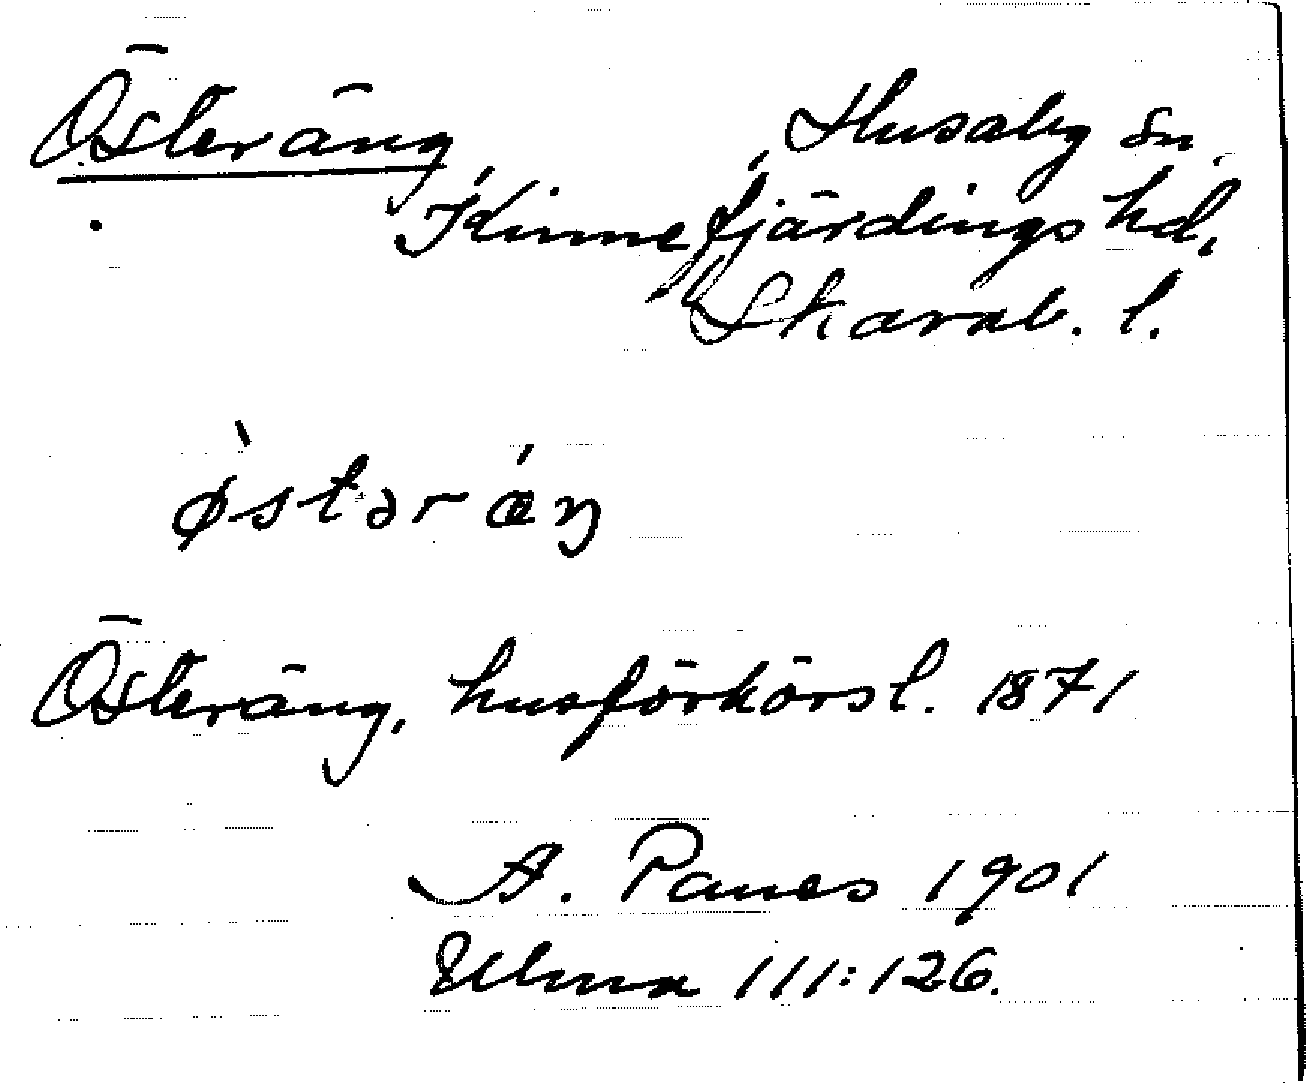 Österäng, Husaby sn,
Kinnefjärdings hd,
Skarab. l.
østəræŋ
Österäng, husförhörsl. 1871
A. Panes 1901
Ulma 111:126.